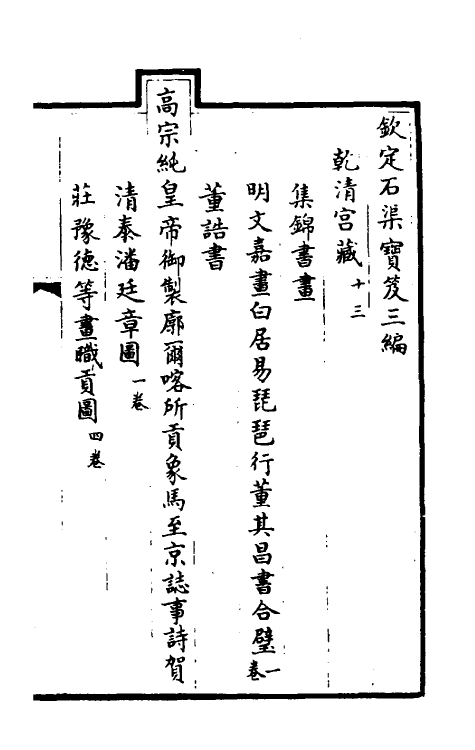 欽定石渠寶笈三編
乾清宮藏十三
集錦書畫
明文嘉畫白居易琵琶行董其昌書合璧一卷
董誥書
高宗純皇帝御製廓爾喀所貢象馬至京誌事詩賀
清泰潘廷章圖一卷
莊豫德等畫職貢圖四卷